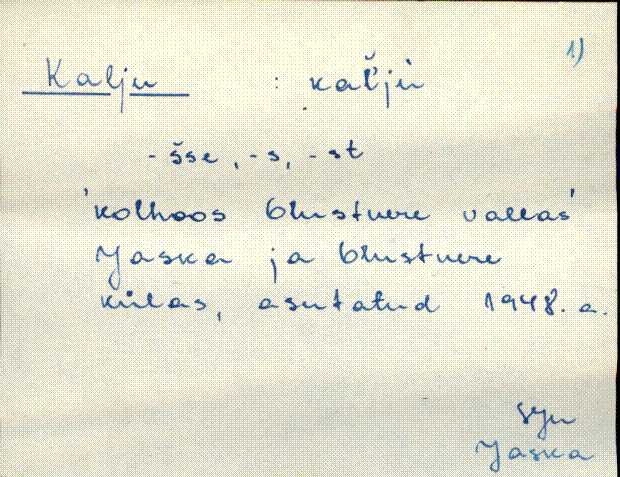 1)
Kalju : kaľjù
-šse, -s, -st
'kolhoos Olustvere vallas'
Jaska ja Olustvere
külas, asutatud 1948. a.
SJn
Jaska